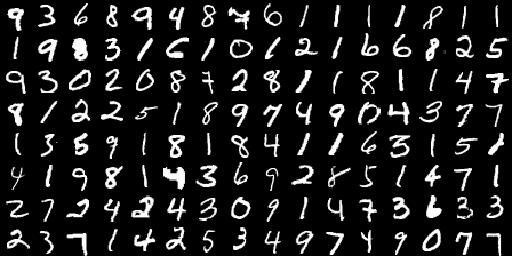 9 3 6 8 9 4 8 7 6 1 1 1 1 8 1 1
1 9 8 3 1 6 1 0 1 2 1 6 6 8 2 5
9 3 0 2 0 8 7 2 8 1 1 8 1 1 4 7
9 1 2 2 5 1 8 9 7 4 9 0 4 3 7 7
1 3 5 9 1 8 1 8 4 1 1 6 3 1 5 1
4 1 9 8 1 4 3 6 9 2 8 5 1 4 7 1
2 7 2 4 2 4 3 0 9 1 4 7 3 6 3 3
2 3 7 1 4 2 5 3 4 9 7 4 9 0 7 7